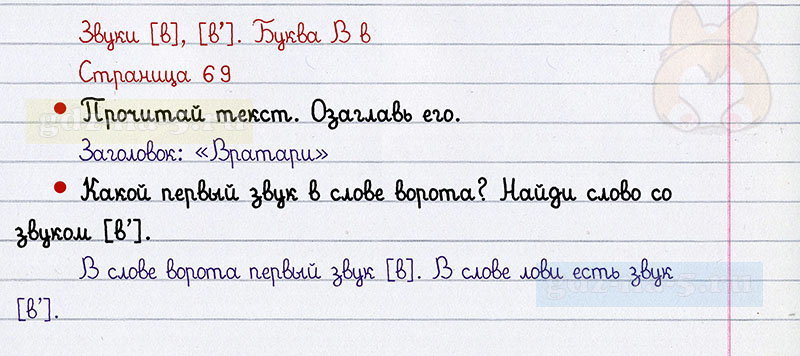 Звуки [в], [в’]. Буква В в
Страница 69
• Прочитай текст. Озаглавь его.
Заголовок: «Вратари»
• Какой первый звук в слове ворота? Найди слово со
звуком [в’].
В слове ворота первый звук [в]. В слове лови есть звук
[в’].